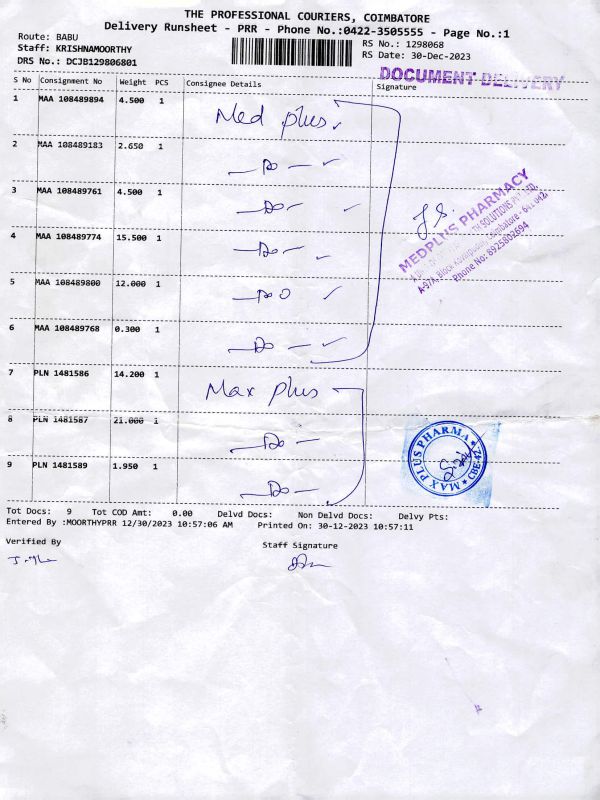 THE PROFESSIONAL COURIERS, COIMBATORE
Delivery Runsheet - PRR - Phone No.:0422-3505555 - Page No.:1
Route: BABU
Staff: KRISHNAMOORTHY
DRS No.: DCJB129806801
RS No.: 1298068
RS Date: 30-Dec-2023
DOCUMENT DELIVERY
S No Consignment No Weight PCS Consignee Details Signature
1 MAA 108489894 4.500 1 Med plus
2 MAA 108489183 2.650 1 — Do —
3 MAA 108489761 4.500 1 — Do —
4 MAA 108489774 15.500 1 — Do —
5 MAA 108489800 12.000 1 — Do
6 MAA 108489768 0.300 1 — Do —
MEDPLUS PHARMACY
SOLUTIONS PVT LTD.
Coimbatore - 641 042.
Phone No: 8925802694
7 PLN 1481586 14.200 1 Max plus
8 PLN 1481587 21.000 1 — Do —
9 PLN 1481589 1.950 1 — Do —
MAX PLUS PHARMA
Tot Docs: 9 Tot COD Amt: 0.00 Delvd Docs: Non Delvd Docs: Delvy Pts:
Entered By :MOORTHYPRR 12/30/2023 10:57:06 AM Printed On: 30-12-2023 10:57:11
Verified By
Staff Signature